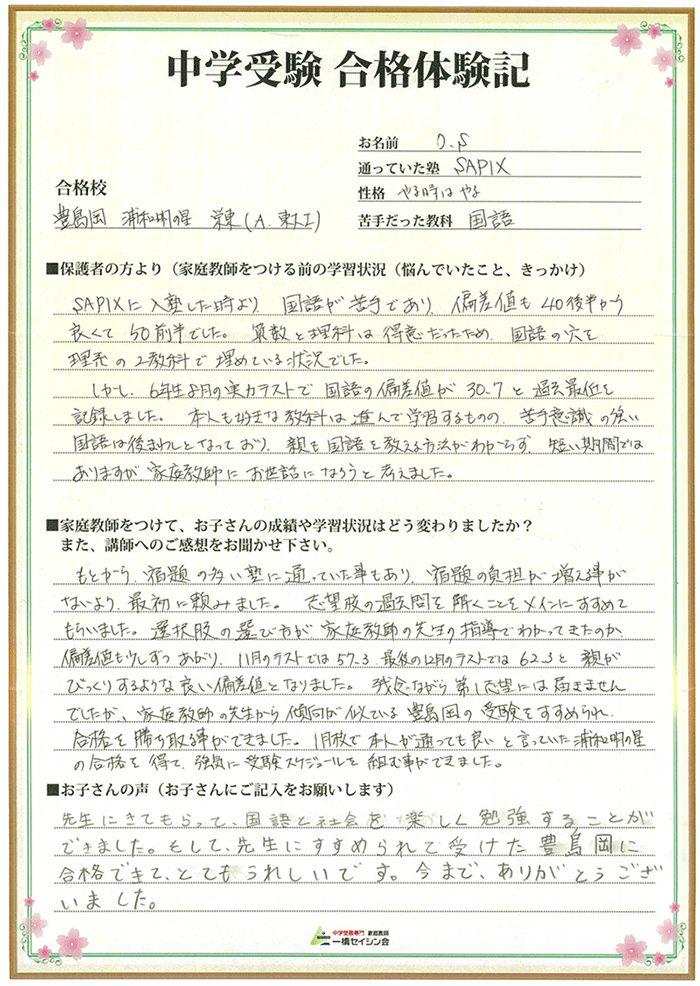 中学受験 合格体験記
お名前 O.S
通っていた塾 SAPIX
合格校
性格 やる時はやる
豊島岡 浦和明の星 栄東(A.東大I)
苦手だった教科 国語
■保護者の方より(家庭教師をつける前の学習状況(悩んでいたこと、きっかけ)
SAPIXに入塾した時より、国語が苦手であり、偏差値も40後半から
良くて50前半でした。算数と理科は得意だったため、国語の穴を
理系の2教科で埋めている状況でした。
しかし、6年生8月の実力テストで国語の偏差値が30.7と過去最低を
記録しました。本人も好きな教科は進んで学習するものの、苦手意識の強い
国語は後まわしとなっており、親も国語を教える方法がわからず、短い期間では
ありますが家庭教師にお世話になろうと考えました。
■家庭教師をつけて、お子さんの成績や学習状況はどう変わりましたか?
また、講師へのご感想をお聞かせ下さい。
もとから、宿題の多い塾に通っていた事もあり、宿題の負担が増える事が
ないよう、最初に頼みました。志望校の過去問を解くことをメインにすすめて
もらいました。選択肢の選び方が家庭教師の先生の指導でわかってきたのか、
偏差値も少しずつあがり、11月のテストでは57.3、最後の12月のテストでは62.3と親が
びっくりするような良い偏差値となりました。残念ながら第1志望には届きません
でしたが、家庭教師の先生から傾向が似ている豊島岡の受験をすすめられ、
合格を勝ち取る事ができました。1月校で本人が通っても良いと言っていた浦和明の星
の合格を得て、強気に受験スケジュールを組む事ができました。
■お子さんの声(お子さんにご記入をお願いします)
先生にきてもらって、国語と社会を楽しく勉強することが
できました。そして、先生にすすめられて受けた豊島岡に
合格できて、とてもうれしいです。今まで、ありがとうござ
いました。
中学受験専門 家庭教師
一橋セイシン会